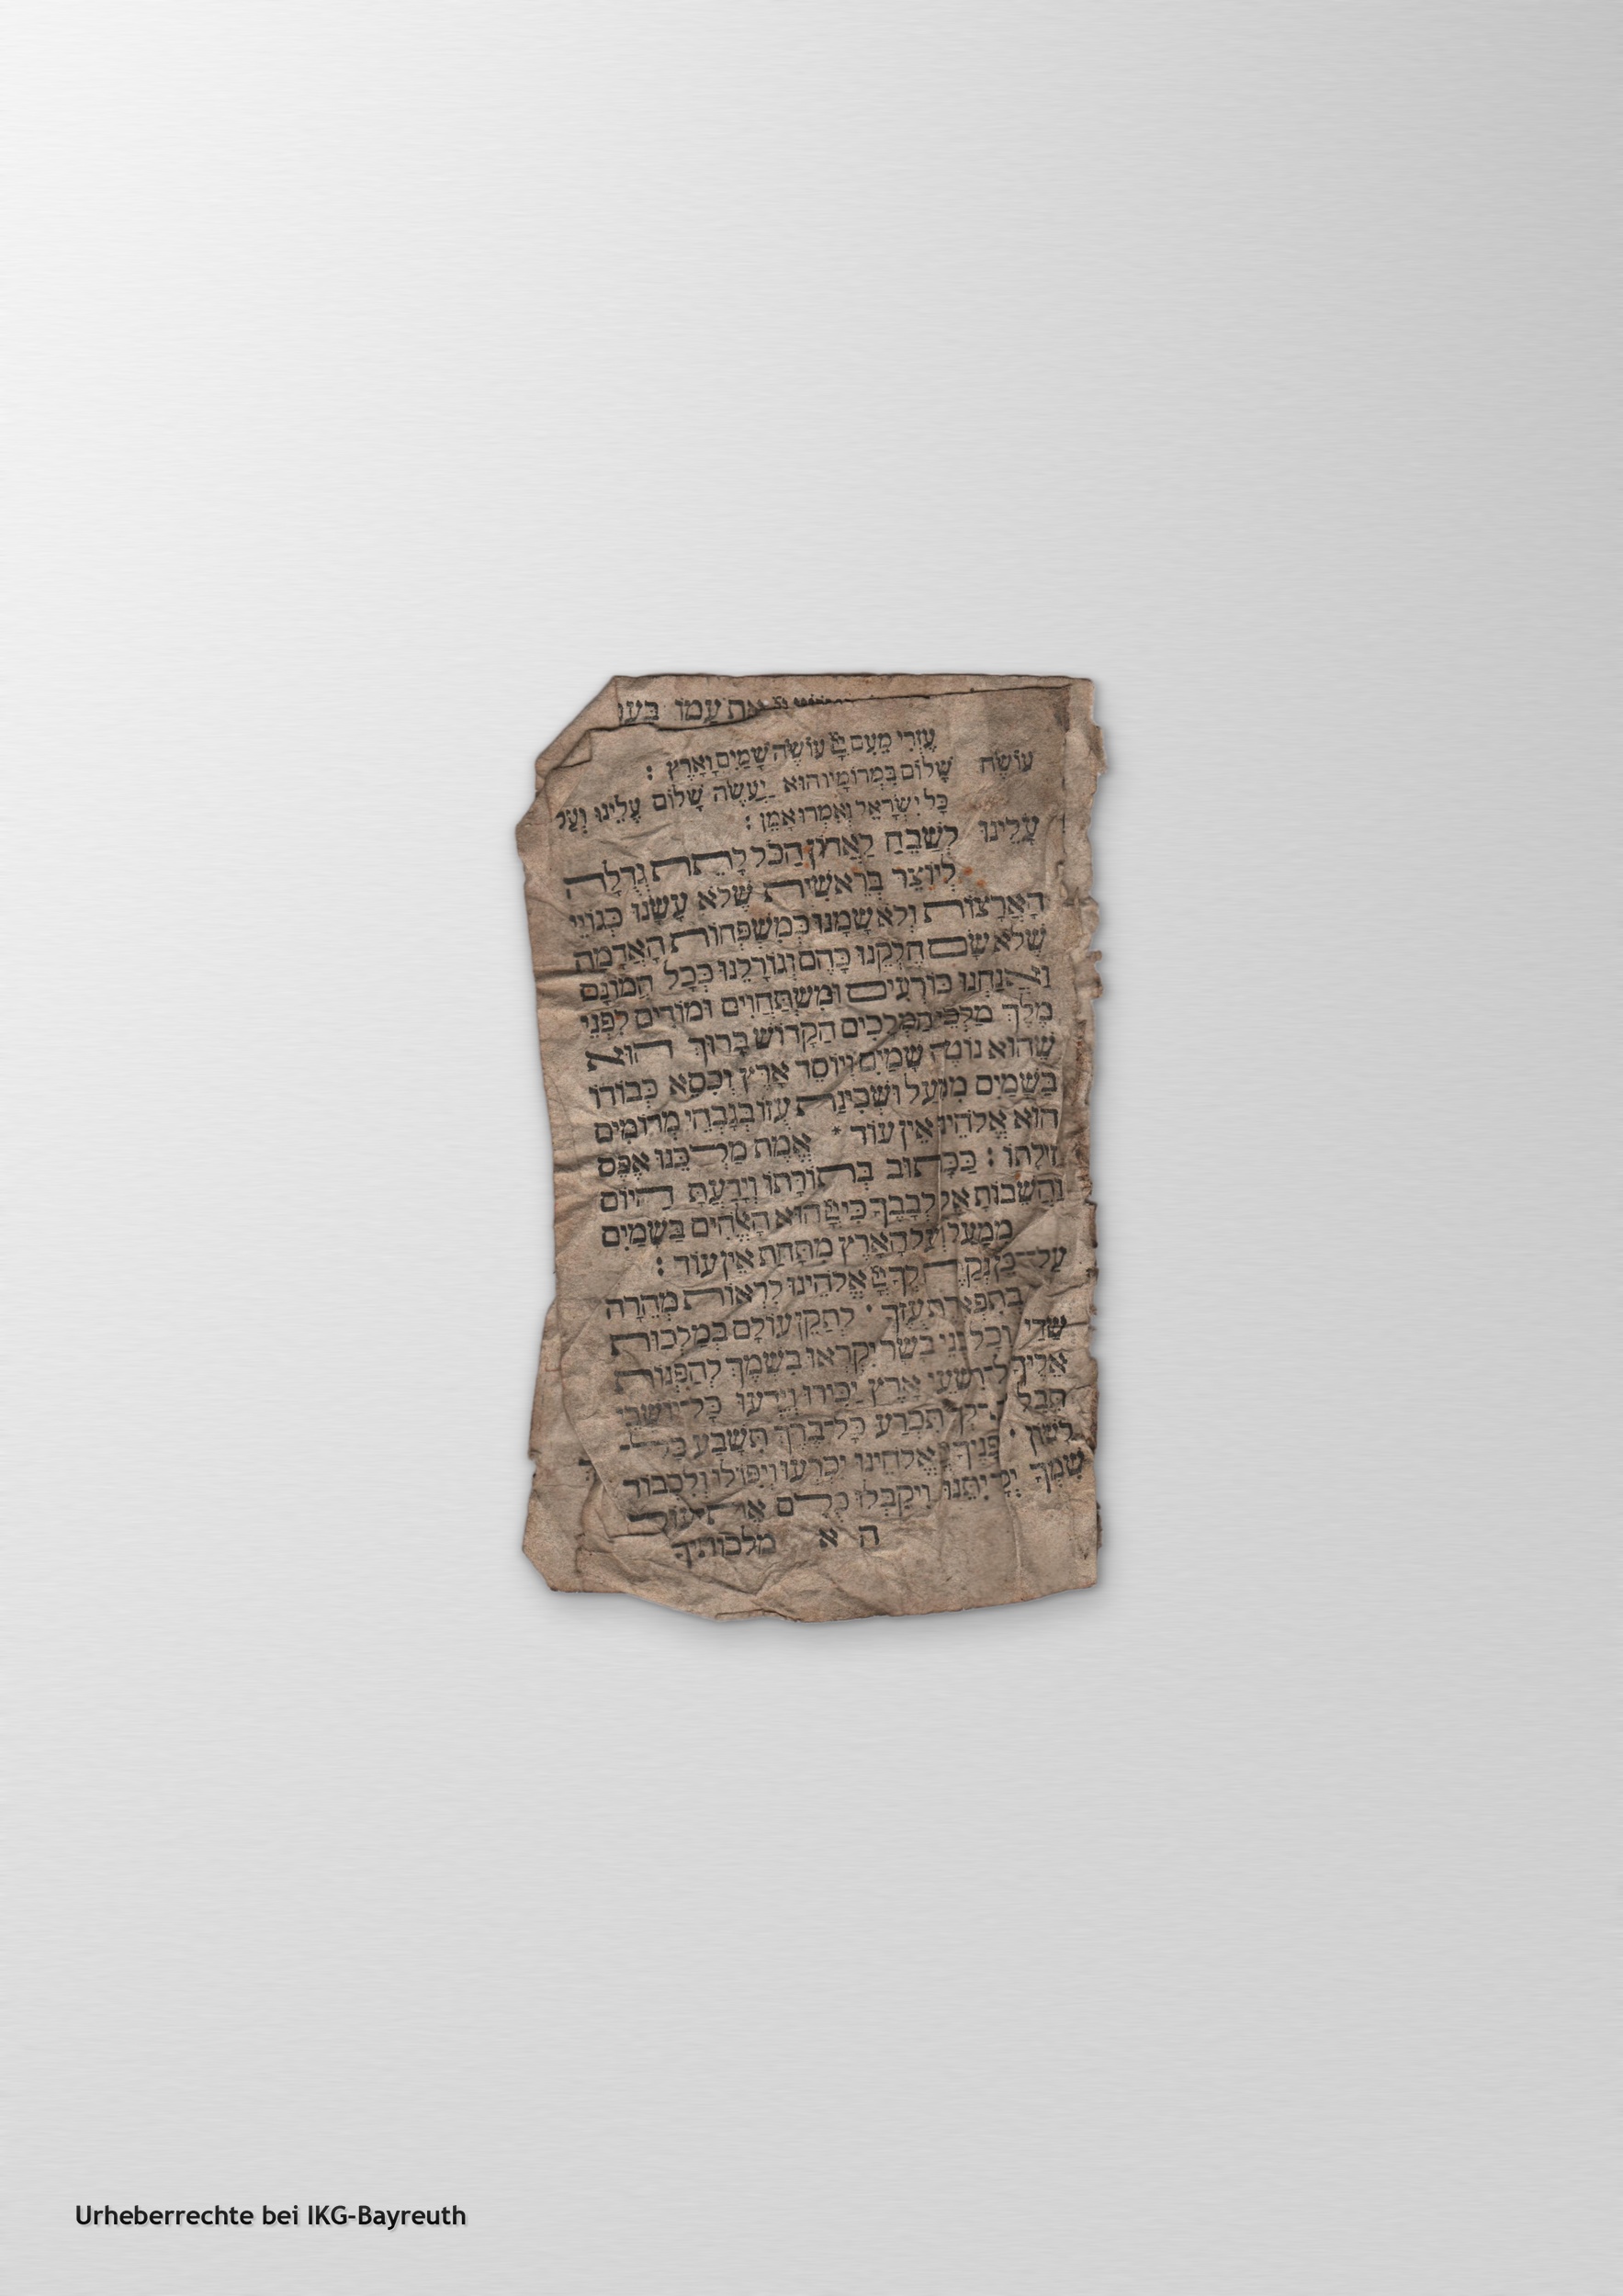 את עמו בעו
עֶזְרִי מֵעִם יְיָ עוֹשֵׂה שָׁמַיִם וָאָרֶץ :
עוֹשֶׂה שָׁלוֹם בִּמְרוֹמָיו הוּא יַעֲשֶׂה שָׁלוֹם עָלֵינוּ וְעַל
כָּל יִשְׂרָאֵל וְאִמְרוּ אָמֵן :
עָלֵינוּ לְשַׁבֵּחַ לַאֲדוֹן הַכֹּל לָתֵת גְּדֻלָּה
לְיוֹצֵר בְּרֵאשִׁית שֶׁלֹּא עָשָׂנוּ כְּגוֹיֵי
הָאֲרָצוֹת וְלֹא שָׂמָנוּ כְּמִשְׁפְּחוֹת הָאֲדָמָה
שֶׁלֹּא שָׂם חֶלְקֵנוּ כָּהֶם וְגוֹרָלֵנוּ כְּכָל הֲמוֹנָם
וַאֲנַחְנוּ כּוֹרְעִים וּמִשְׁתַּחֲוִים וּמוֹדִים לִפְנֵי
מֶלֶךְ מַלְכֵי הַמְּלָכִים הַקָּדוֹשׁ בָּרוּךְ הוּא
שֶׁהוּא נוֹטֶה שָׁמַיִם וְיוֹסֵד אָרֶץ וְכִסֵּא כְבוֹדוֹ
בַּשָּׁמַיִם מִמַּעַל וּשְׁכִינַת עֻזּוֹ בְּגָבְהֵי מְרוֹמִים
הוּא אֱלֹהֵינוּ אֵין עוֹד * אֱמֶת מַלְכֵּנוּ אֶפֶס
זוּלָתוֹ : כַּכָּתוּב בְּתוֹרָתוֹ וְיָדַעְתָּ הַיּוֹם
וַהֲשֵׁבוֹתָ אֶל לְבָבֶךָ כִּי יְיָ הוּא הָאֱלֹהִים בַּשָּׁמַיִם
מִמַּעַל וְעַל הָאָרֶץ מִתַּחַת אֵין עוֹד :
עַל כֵּן נְקַוֶּה לְךָ יְיָ אֱלֹהֵינוּ לִרְאוֹת מְהֵרָה
בְּתִפְאֶרֶת עֻזֶּךָ · לְתַקֵּן עוֹלָם בְּמַלְכוּת
שַׁדַּי וְכָל בְּנֵי בָשָׂר יִקְרְאוּ בִשְׁמֶךָ לְהַפְנוֹת
אֵלֶיךָ כָּל רִשְׁעֵי אָרֶץ יַכִּירוּ וְיֵדְעוּ כָּל יוֹשְׁבֵי
תֵבֵל תִּכְרַע כָּל בֶּרֶךְ תִּשָּׁבַע כָּל
לָשׁוֹן · לְפָנֶיךָ יְיָ אֱלֹהֵינוּ יִכְרְעוּ וְיִפּוֹלוּ וְלִכְבוֹד
שִׁמְךָ יְקָר יִתְּנוּ וִיקַבְּלוּ כֻלָּם אֶת עוֹל
ה א מלכותיך
Urheberrechte bei IKG-Bayreuth